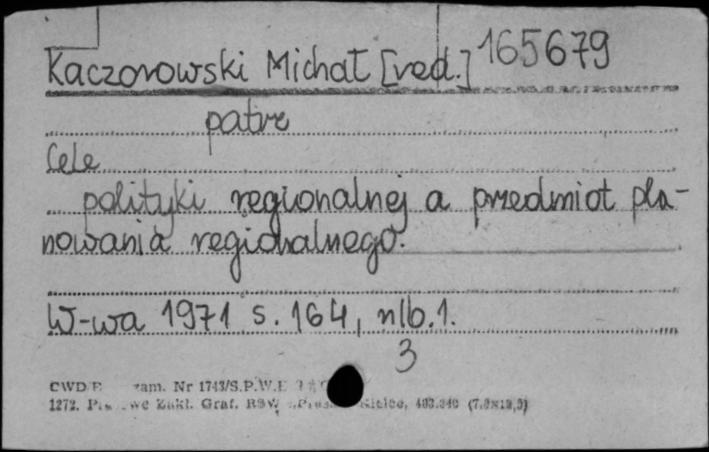 Kaczorowski Michał [red.] 165679
patrz
Cele
polityki regionalnej a przedmiot pla-
nowania regionalnego.
W-wa 1971 s. 164, nlb. 1.
3
CWD zam. Nr 1743/S.P.W.E
1272. Zakł. Graf. RSW Kielce, (7.5×12,5)